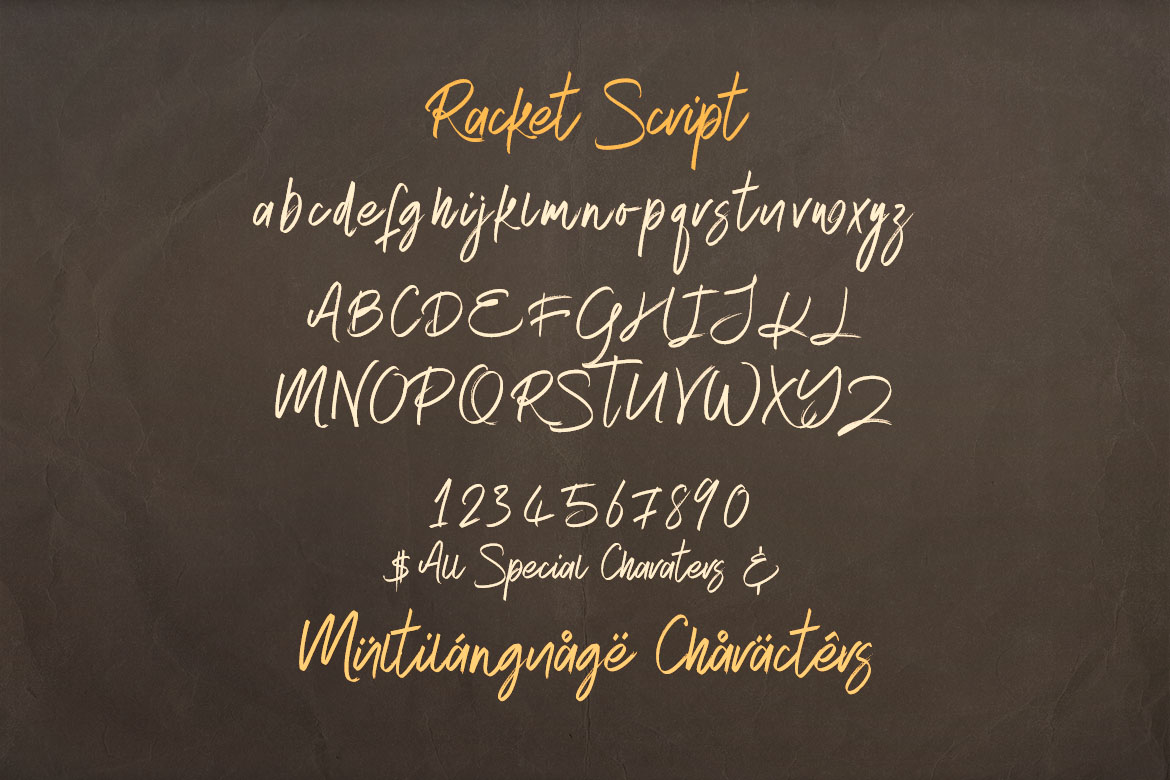 Racket Script
abcdefghijklmnopqrstuvwxyz
ABCDEFGHIJKL
MNOPQRSTUVWXYZ
1234567890
$ All Special Charaters &
Mültilánguågë Chåräctêrs